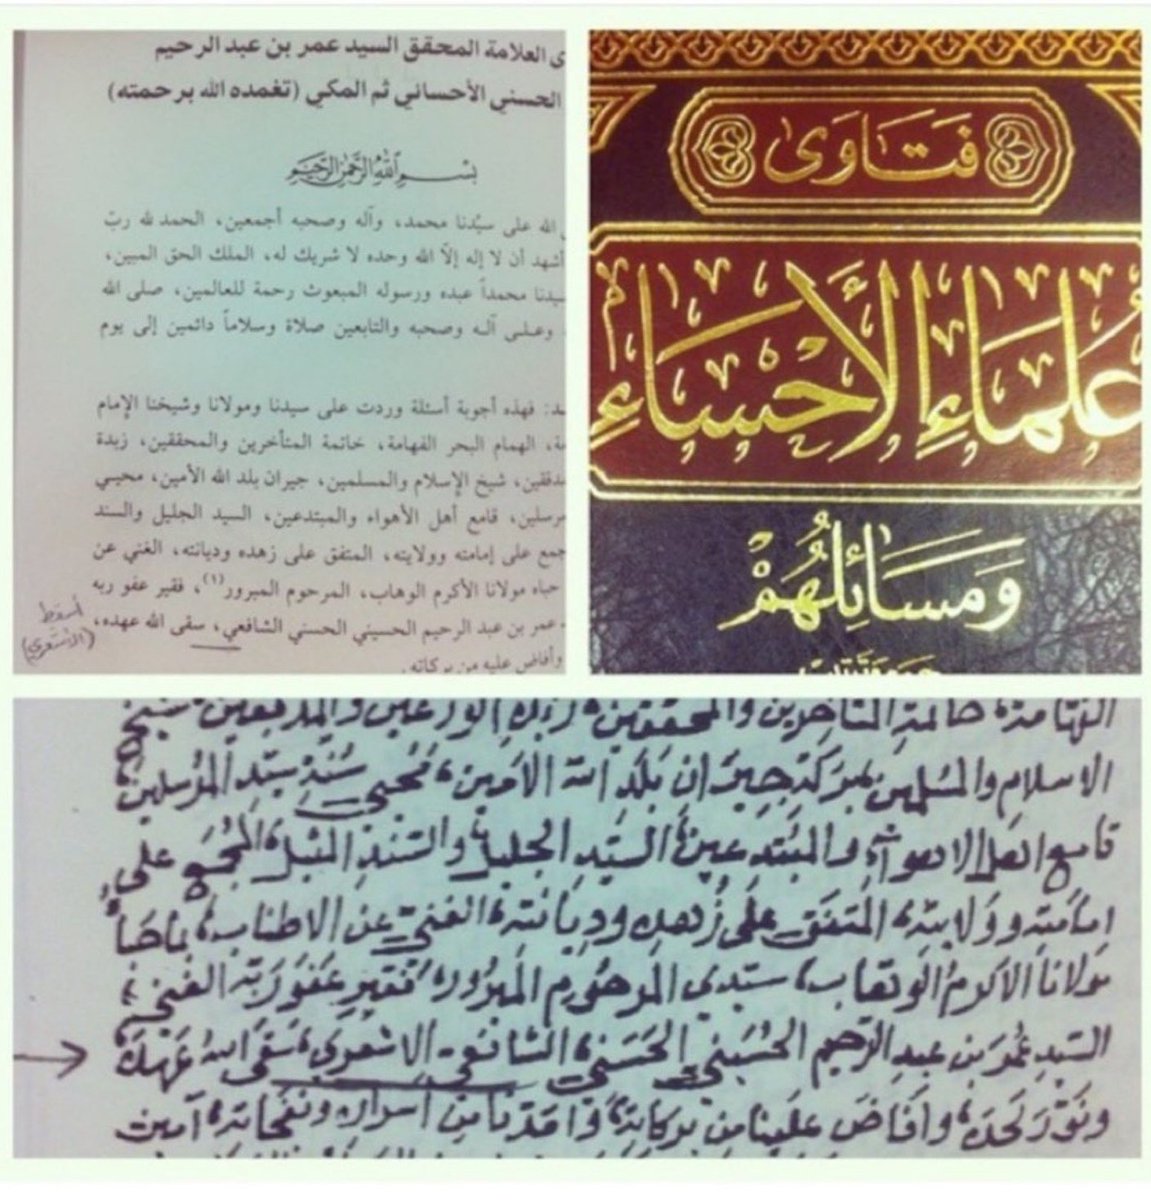 ى العلامة المحقق السيد عمر بن عبد الرحيم
الحسني الأحسائي ثم المكي (تغمده الله برحمته)
بسم الله الرحمن الرحيم
الله على سيّدنا محمد، وآله وصحبه أجمعين، الحمد لله ربّ
أشهد أن لا إله إلّا الله وحده لا شريك له، الملك الحق المبين،
يدنا محمداً عبده ورسوله المبعوث رحمة للعالمين، صلى الله
وعلى آله وصحبه والتابعين صلاة وسلاماً دائمين إلى يوم
ـد: فهذه أجوبة أسئلة وردت على سيدنا ومولانا وشيخنا الإمام
ـة، الهمام البحر الفهامة، خاتمة المتأخرين والمحققين، زبدة
مدققين، شيخ الإسلام والمسلمين، جيران بلد الله الأمين، محيي
مرسلين، قامع أهل الأهواء والمبتدعين، السيد الجليل والسند
جمع على إمامته وولايته، المتفق على زهده وديانته، الغني عن
حباه مولانا الأكرم الوهاب، المرحوم المبرور(١)، فقير عفو ربه
عمر بن عبد الرحيم الحسيني الحسني الشافعي، سقى الله عهده،
وأفاض عليه من بركاته.
أسقط
(الأشعري)
فَتَاوَى
عُلَمَاءِ الأَحْسَاءِ
وَمَسَائِلُهُمْ
خاتمة المتأخرين والمحققين، زبدة الورعين والمدققين، شيخ
الاسلام والمسلمين بمركة جيران بلد الله الامين، محيي سنة سيد المرسلين،
قامع اهل الاهواء والمبتدعين، السيد الجليل والسند النبيل، المجمع على
امامته وولايته، المتفق على زهده وديانته، الغني عن الاطناب، بما حباه
مولانا الاكرم الوهاب، سيدي المرحوم المبرور، فقير عفو ربه الغني،
السيد عمر بن عبد الرحيم الحسيني الحسني، الشافعي الاشعري، سقى الله عهده
ونور لحده، وافاض علينا من بركاته، وامدنا من اسراره ونفحاته، آمين